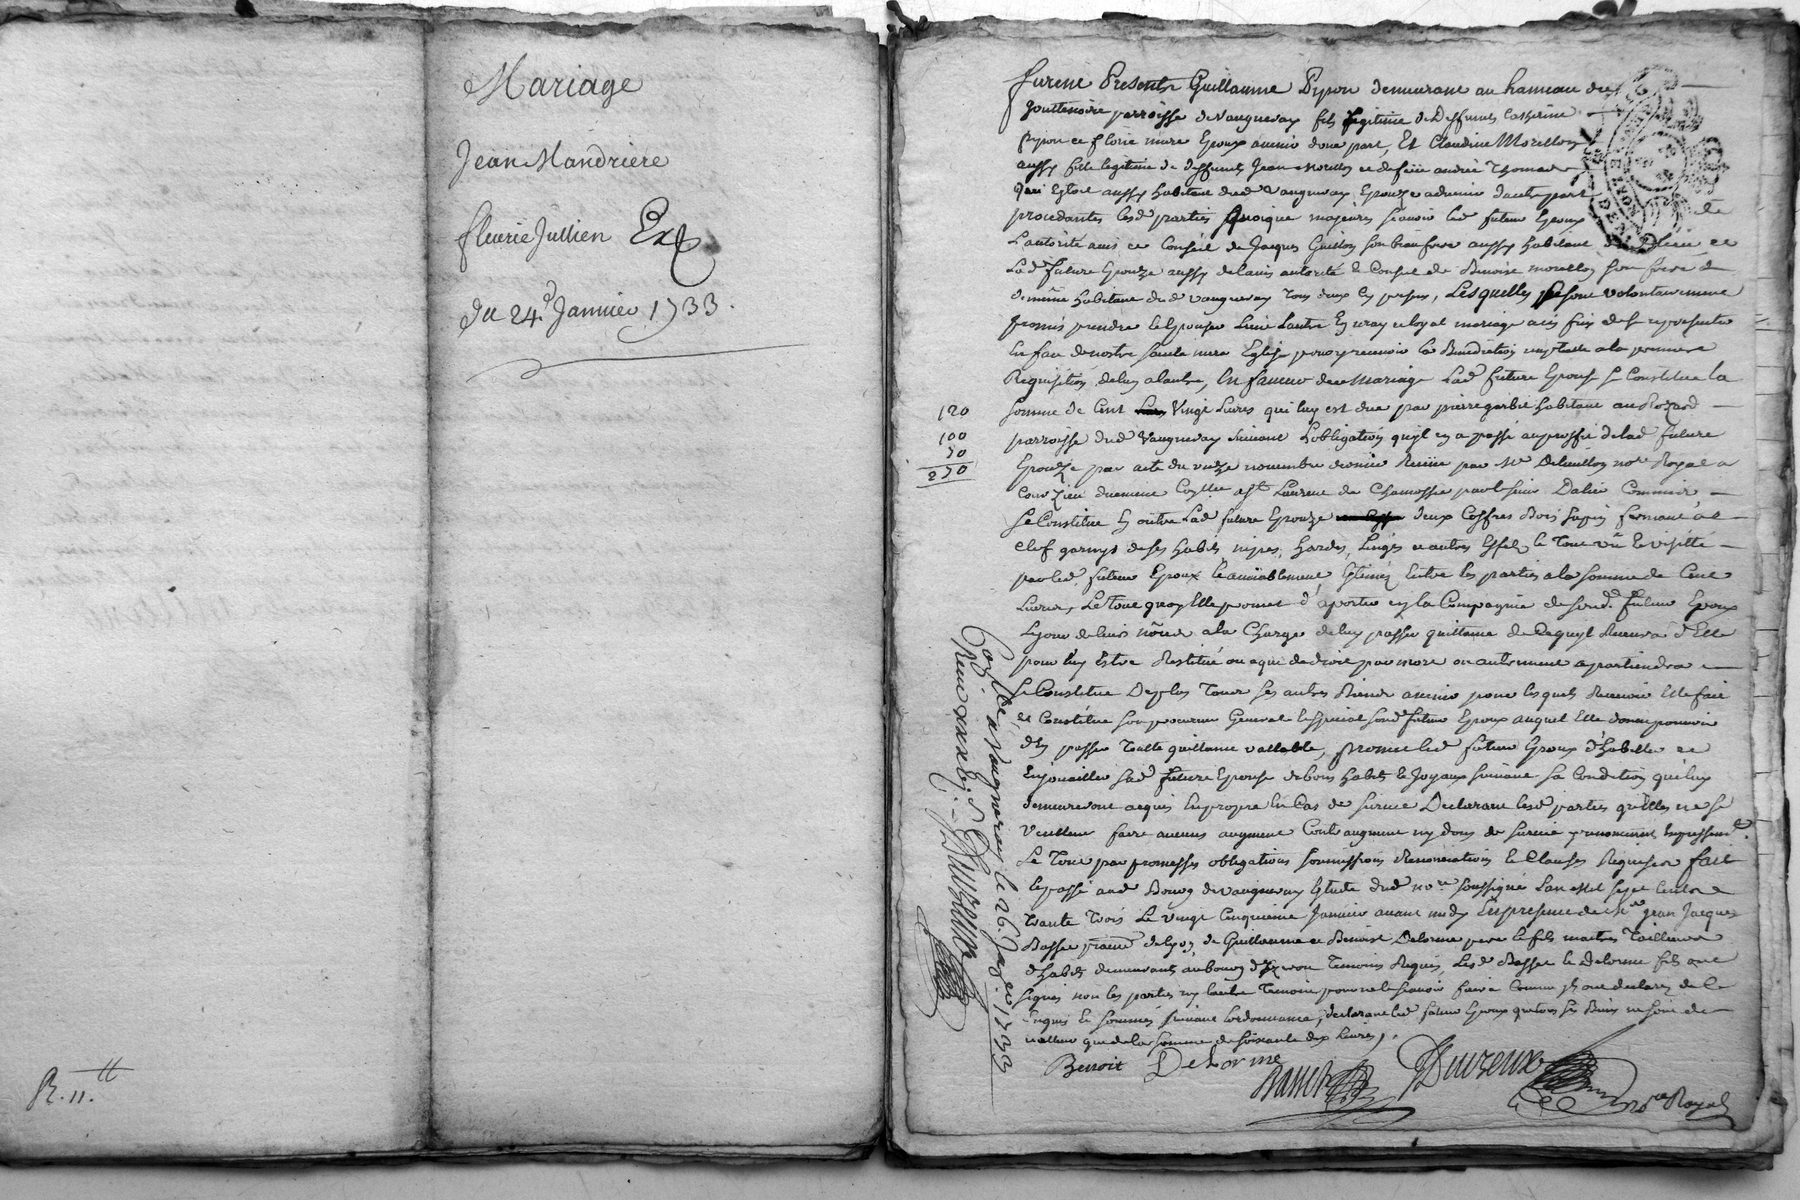 Mariage
Jean Mandriere
fleurie Jullien Exp
du 24.e Janvier 1733.
R. 11.tt
furent Presents Guillaume Pipon demeurant au hameau du
gouttenoire parroisse de Vaugneray fils legitime de Deffunts Catherine
et florie mure Epoux avenir d'une part, Et Claudine Morellon
aussy fille legitime de deffunts Jean Morellon et de fleurie andrée Thomas
qui Estoit aussy habitant dud Vaugneray Epouze advenir d'autre part
procedantes lesd parties quoique majeures sçavoir led futur Epoux
de
L'autorité avis et Conseil de Jacques Guillon son beaufrere aussy habitant dud lieu et
Lad future Epouze aussy de l'avis autorité et Conseil de Benoist morellon son frere
demême habitant dud Vaugneray tous deux icy presents, Lesquelles se sont volontairement
promis prendre et Epouser L'un L'autre En vray et loyal mariage a ces fins de se representer
En face de nostre sainte mere Eglise pour y recevoir la Benediction nuptialle a la premiere
Requisition de l'un a l'autre, En faveur dece Mariage Lad future Epouse se Constitue la
120
somme de Cent Vingt Livres qui luy est due par pierre garbit habitant au Rozard
100
parroisse dud Vaugneray suivant L'obligation qu'il en a passé au proffit de lad future
50
Epouze par acte du onze novembre dernier Receue par Me Delaillon nore Royal a
270
Courzieu duement Controllé
se Constitue En outre Lad future Epouze deux Coffres Bois sapin fermant a
clef garnys de ses habits, nipes, hardes, Linges et autres Effets, le Tout vû et visitté
par led. futur Epoux et amiablement Estimés Entre les parties a la somme de Cent
Livres, Le Tout quoy Elle promet d'aporter en la Compagnie de sond. futur Epoux
Le jour de leurs nôces a la Charge de luy passer quittance de Ce qu'il Recevra d'Elle
pour luy Estre Restitué ou a qui de droit par mort ou autrement apartiendra
se Constitue De plus Tous ses autres Biens avenir pour lesquels Recevoir Elle fait
et Constitue son procureur General et special sond futur Epoux auquel Elle donne pouvoir
d'En passer Toutte quittance vallable, promet led futur Epoux d'habiller et
Enjouailler sad future Epouse de bons habits et Joyaux suivant sa Condition qui luy
demeureront acquis En propre En Cas de survie Declarant lesd parties qu'elles ne se
Veullent faire aucuns augment Contr'augment ny dons de survie y renoncant Expressemt.
Le Tout par promesses obligations soumissions Renonciations et Clauses Requises fait
et passé aud Bourg de Vaugneray Etude dud nore soussigné L'an mil sept Cent
Trante Trois Le vingt Cinquieme Janvier avant midy En presence de Me Jean Jacques
Basset de Guillaume et Benoist Delorme pere et fils maitres Tailleurs
d'habits demeurants au bourg d'Yzeron Temoins Requis, Lesd Basset et Delorme fils ont
signés non les parties ny l'autre Temoin pour ne le sçavoir faire Comme ils ont declarez de ce
Enquis Et sommés suivant L'ordonnance, declarant led futur Epoux que tous ses Biens ne sont de
valleur que de la somme de soixante dix Livres,.
Benoit Delorme
Basset
Duvreux
nore Royal
Controllé à Vaugneray le 26. Janer 1733
Receu xxxvj. s. Duvreux